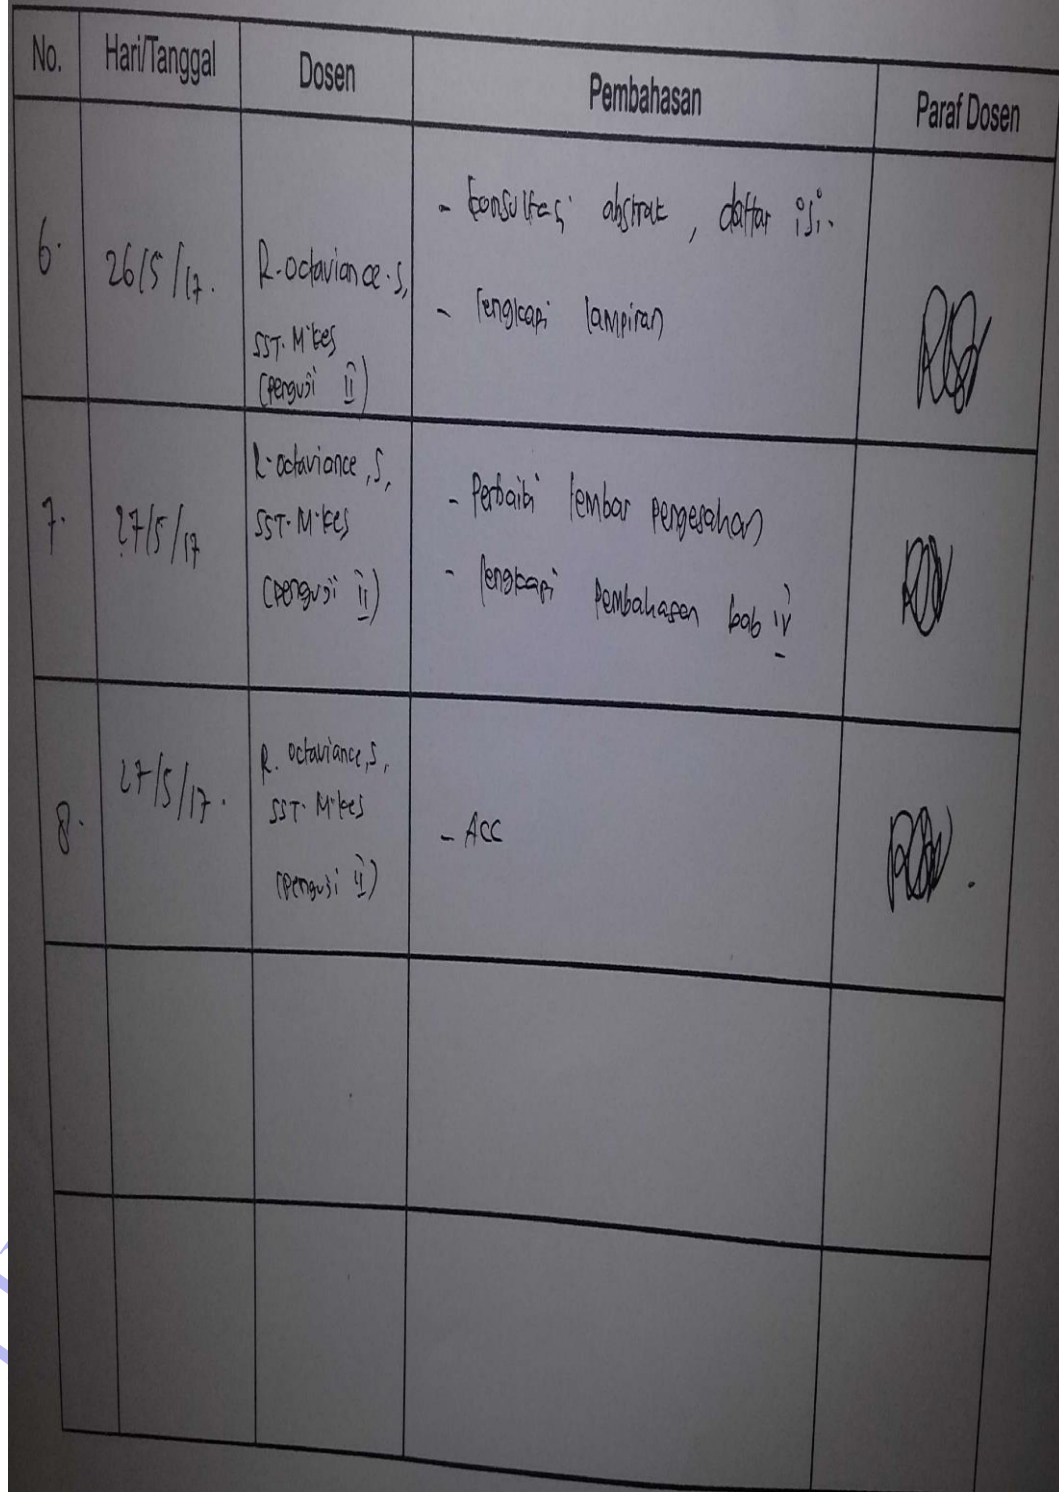 No. Hari/Tanggal Dosen Pembahasan Paraf Dosen
6. 26/5/17. R. octaviance. S, SST. M.kes (penguji II)
- konsultasi abstrak, daftar isi.
- lengkapi lampiran
7. 27/5/17 R. octaviance, S, SST. M.kes (penguji II)
- Perbaiki lembar pengesahan
- lengkapi Pembahasan bab IV
8. 27/5/17. R. octaviance, S, SST. M.kes (penguji II)
- Acc